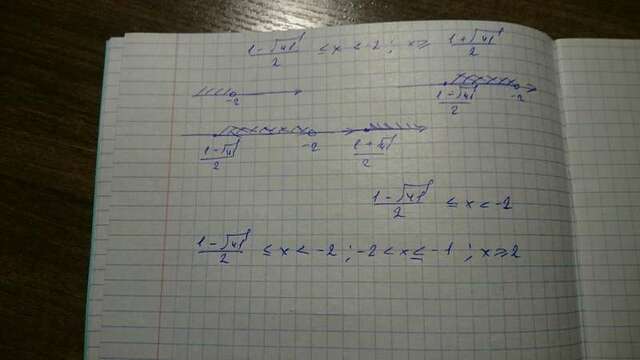 (1-√41)/2 ≤ x < -2 ; x ≥ (1+√41)/2
-2
(1-√41)/2 -2
(1-√41)/2 -2 (1+√41)/2
(1-√41)/2 ≤ x < -2
(1-√41)/2 ≤ x < -2 ; -2 < x ≤ -1 ; x ≥ 2